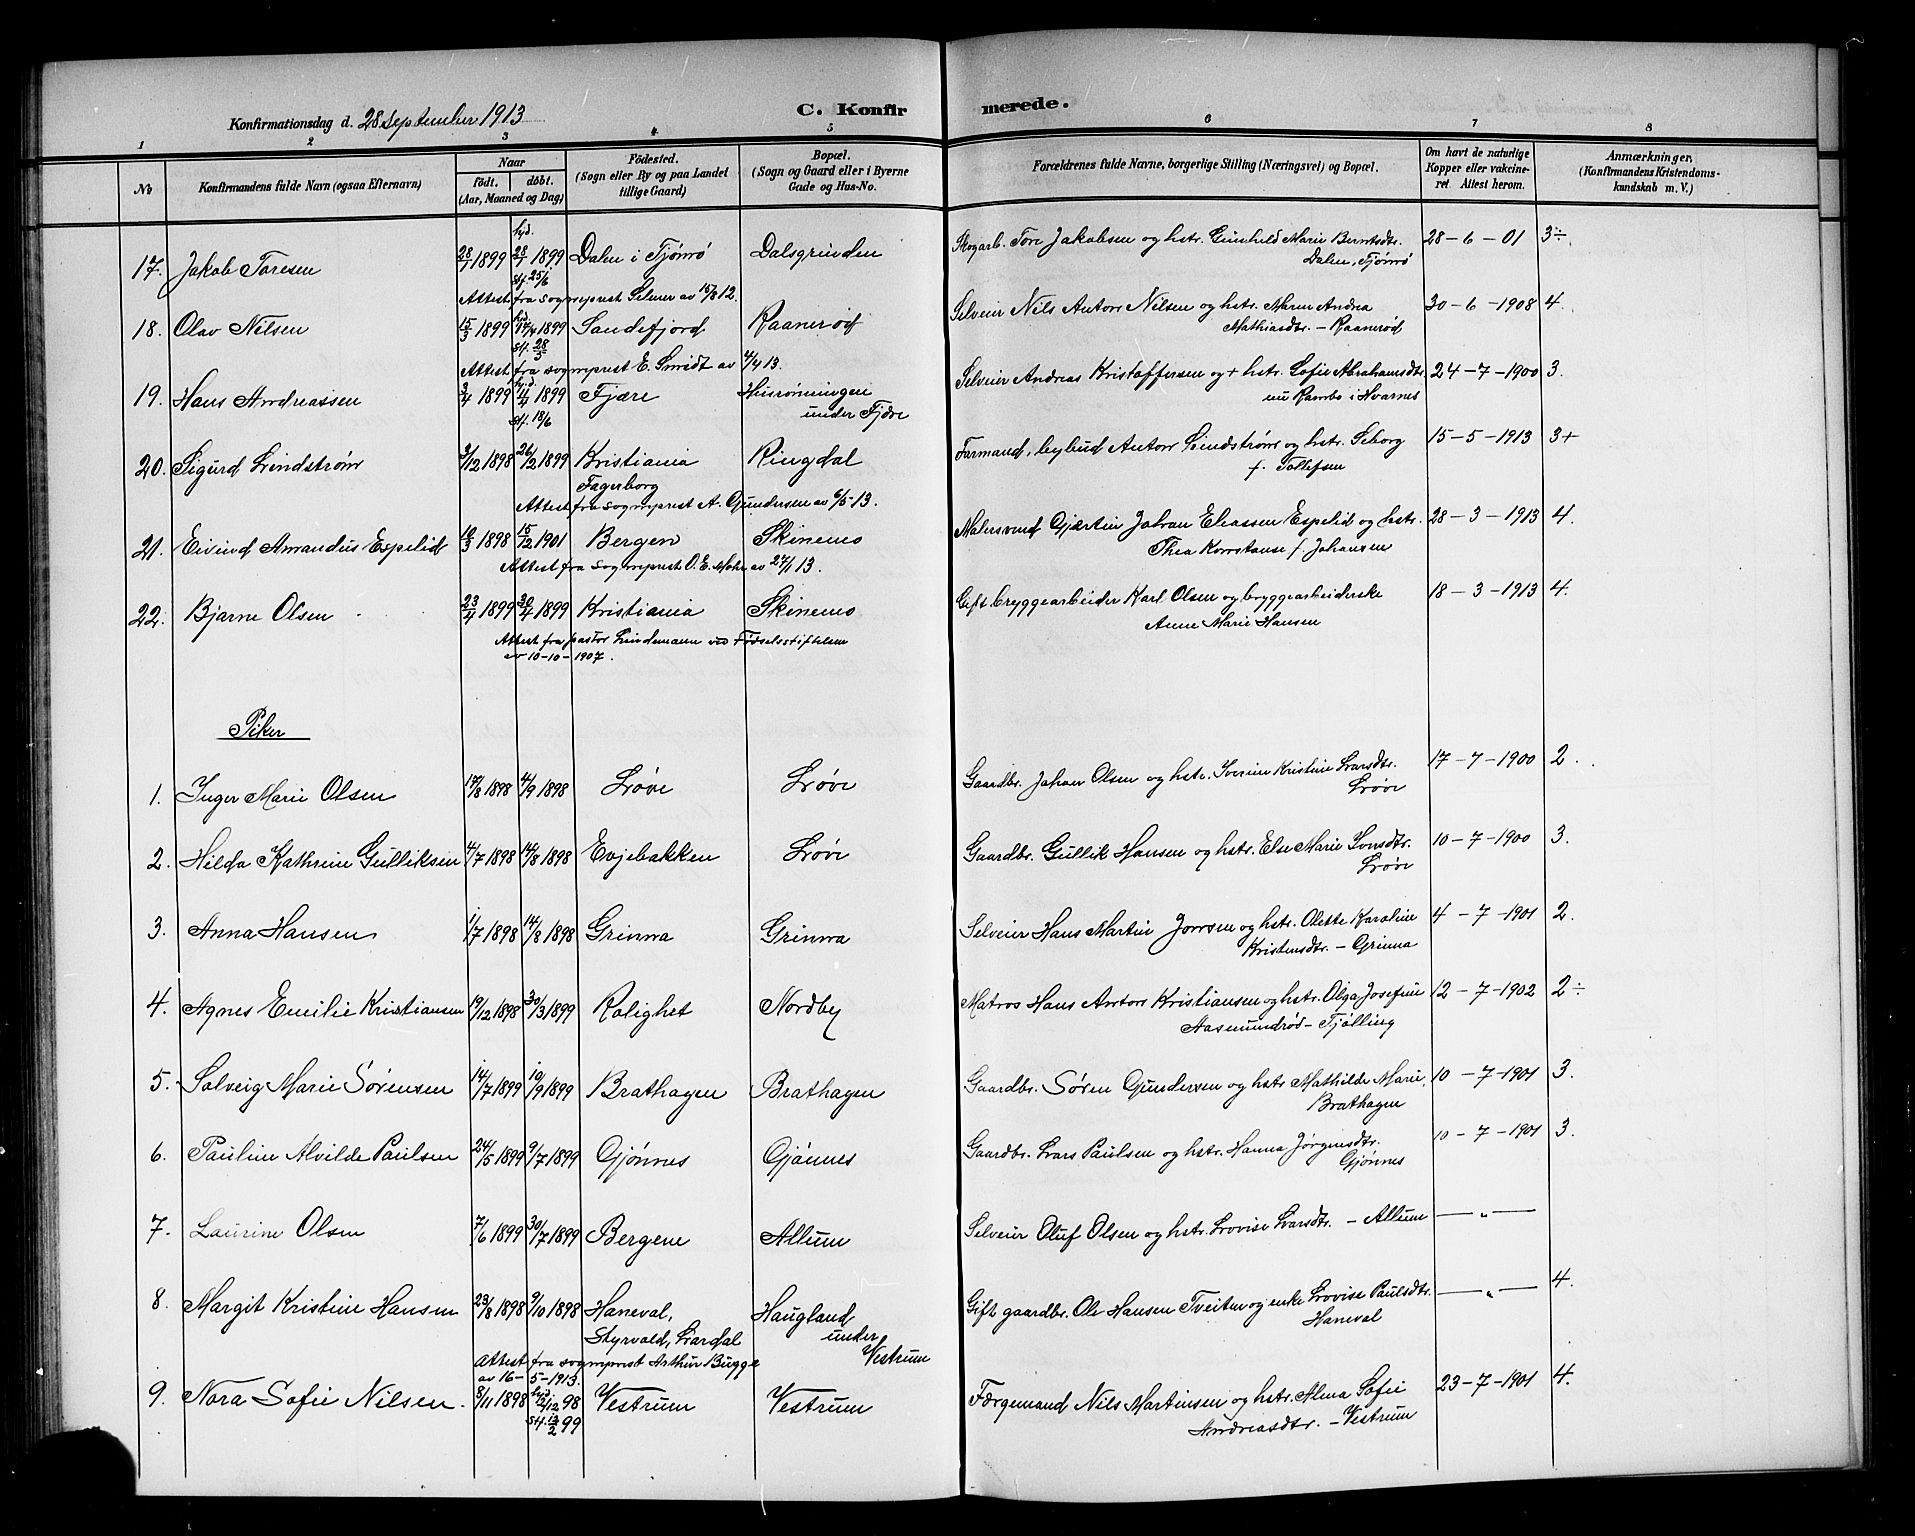 Konfirmationsdag d. 28 september 1913
C. Konfirmerede.
1 2 3 4 5 6 7 8
No
Konfirmandens fulde Navn (ogsaa Efternavn)
Naar
født. døbt.
(Aar, Maaned og Dag)
Fødested.
(Sogn eller By og paa Landet tillige Gaard)
Bopæl.
(Sogn og Gaard eller i Byerne Gade og Hus-No.
Forældrenes fulde Navne, borgerlige Stilling (Næringsvei) og Bopæl.
Om havt de naturlige Kopper eller vakcineret. Attest herom.
Anmærkninger,
(Konfirmandens Kristendomskundskab m. V.)
17. Jakob Toresen 28/7 1899 hjd. 28/7 1899 st. 25/6 Dalen i Tjømø Dalsgrinden Skogarb. Tore Jakobsen og hstr. Gunhild Marie Berntsdtr. 28-6-01 3÷
Dalen, Tjømø
Attest fra sogneprest Selmer av 15/8 12.
18. Olav Nilsen 15/3 1899 hjd. 1899 st. 28/5 Sandefjord Raanerød Selveier Nils Anton Nilsen og hstr. Maren Andrea 30-6-1908 4.
Mathiasdtr. - Raanerød
Attest fra sogneprest E. Smidt av 4/4 13.
19. Hans Andreassen 3/4 1899 hjd. 1899 st. 18/6 Fjære Husrønningen Selveier Andreas Kristoffersen og + hstr. Sofie Abrahamsdtr. 24-7-1900 3.
under Fjære nu Rambo i Hvarnes
20. Sigurd Lindstrøm 3/12 1898 26/2 1899 Kristiania Ringdal Formand, bybud Anton Lindstrøm og hstr. Seborg 15-5-1913 3+
Fagerborg f. Tollefsen
Attest fra sogneprest A. Gundersen av 6/5-13.
21. Eivind Amandus Espelid 18/3 1898 15/12 1901 Bergen Skinemo Malersvend Gjertin Johan Eliassen Espelid og hstr. 28-3-1913 4.
Thea Konstanse f. Johansen
Attest fra sogneprest O. E. Mohr av 27/1 13.
22. Bjarne Olsen 23/4 1899 30/4 1899 Kristiania Skinemo Gift bryggearbeider Karl Olsen og bryggearbeiderske 18-3-1913 4.
Anne Marie Hansen
Attest fra pastor Lindemann ved Fødselsstiftelsen
av 10-10-1907.
Piker
1. Inger Marie Olsen 17/8 1898 4/9 1898 Løve Løve Gaardbr. Johan Olsen og hstr. Iverine Kristine Larsdtr. 17-7-1900 2.
Løve
2. Hilda Kathrine Gulliksen 4/7 1898 14/8 1898 Evjebakken Løve Gaardbr. Gullik Hansen og hstr. Else Marie Ivarsdtr. 10-7-1900 3.
Løve
3. Anna Hansen 1/7 1898 14/8 1898 Grinna Grinna Selveier Hans Martin Jonsen og hstr. Olette Karoline 4-7-1901 2.
Kristensdtr. - Grinna
4. Agnes Emilie Kristiansen 19/12 1898 30/3 1899 Rolighet Nordby Matros Hans Anton Kristiansen og hstr. Olga Josefine 12-7-1902 2÷
Aasmundrød - Tjølling
5. Solveig Marie Sørensen 14/7 1899 10/9 1899 Brathagen Brathagen Gaardbr. Søren Gundersen og hstr Mathilde Marie 10-7-1901 3.
Brathagen
6. Pauline Alvilde Paulsen 24/5 1899 9/7 1899 Gjønnes Gjønnes Gaardbr. Lars Paulsen og hstr. Hanna Jørgensdtr. 10-7-1901 3.
Gjønnes
7. Laurine Olsen 7/6 1899 30/7 1899 Bergene Allum Selveier Oluf Olsen og hstr. Lovise Larsdtr. - Allum — „ —
8. Margit Kristine Hansen 23/8 1898 9/10 1898 Haneval, Haugland Gift gaardbr. Ole Hansen Tveiten og enke Lovise Paulsdtr. — „ — 4.
Styrvold, Lardal under Vestrum Haneval
Attest fra sogneprest Arthur Bugge
av 16-5-1913.
9. Nora Sofie Nilsen 8/11 1898 hjd. 12/12 98 Vestrum Vestrum Færgemand Nils Martinsen og hstr. Alma Sofie 23-7-1901 4.
st. 12/2 99 Andreasdtr. - Vestrum